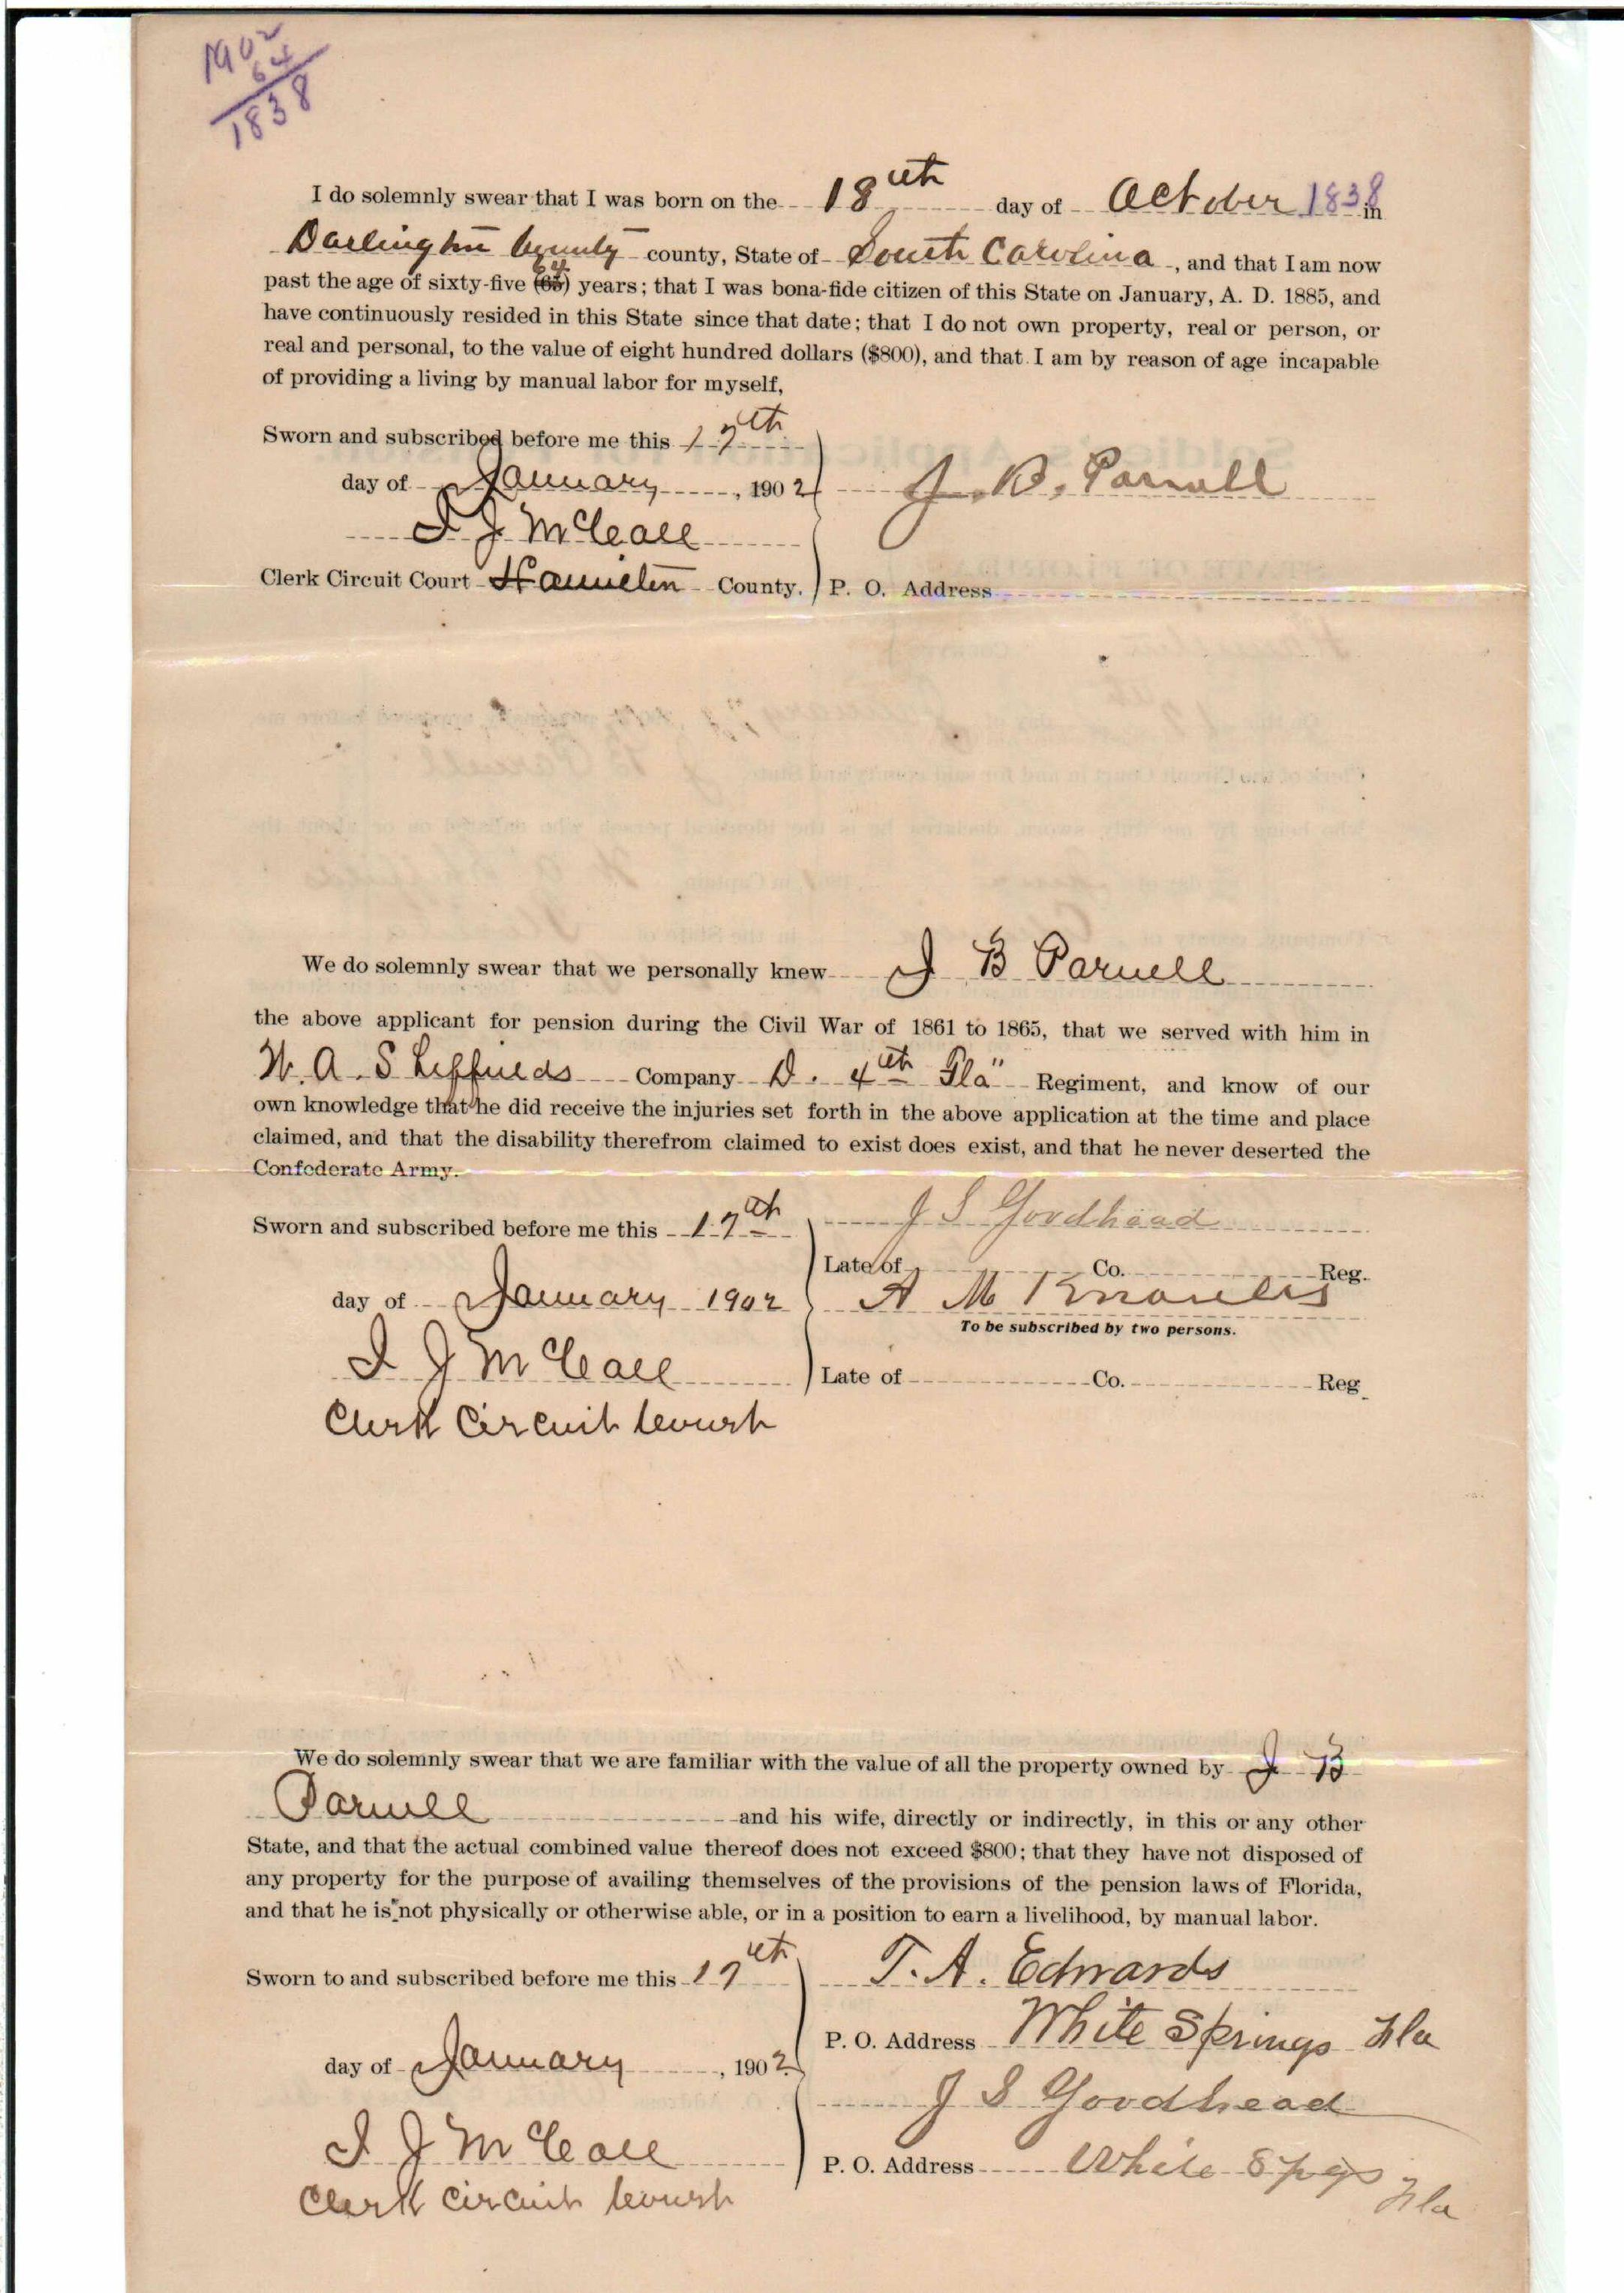 1902
64
1838
I do solemnly swear that I was born on the 18th day of October 1838 in
Darlington County county, State of South Carolina, and that I am now
64
past the age of sixty-five (65) years; that I was bona-fide citizen of this State on January, A. D. 1885, and
have continuously resided in this State since that date; that I do not own property, real or person, or
real and personal, to the value of eight hundred dollars ($800), and that I am by reason of age incapable
of providing a living by manual labor for myself,
Sworn and subscribed before me this 17th
day of January, 1902 J. B. Parnell
I J McCall
Clerk Circuit Court Hamilton County. P. O. Address
We do solemnly swear that we personally knew J B Parnell
the above applicant for pension during the Civil War of 1861 to 1865, that we served with him in
W. A. Sheffields Company D. 4th Fla" Regiment, and know of our
own knowledge that he did receive the injuries set forth in the above application at the time and place
claimed, and that the disability therefrom claimed to exist does exist, and that he never deserted the
Confederate Army.
Sworn and subscribed before me this 17th J S Goodhead
Late of Co. Reg.
day of January 1902 A M Knowles
To be subscribed by two persons.
I J McCall Late of Co. Reg
Clerk Circuit Court
We do solemnly swear that we are familiar with the value of all the property owned by J B
Parnell and his wife, directly or indirectly, in this or any other
State, and that the actual combined value thereof does not exceed $800; that they have not disposed of
any property for the purpose of availing themselves of the provisions of the pension laws of Florida,
and that he is not physically or otherwise able, or in a position to earn a livelihood, by manual labor.
Sworn to and subscribed before me this 17th T. A. Edwards
P. O. Address White Springs Fla
day of January, 1902
J S Goodhead
I J McCall P. O. Address White Spgs Fla
Clerk Circuit Court